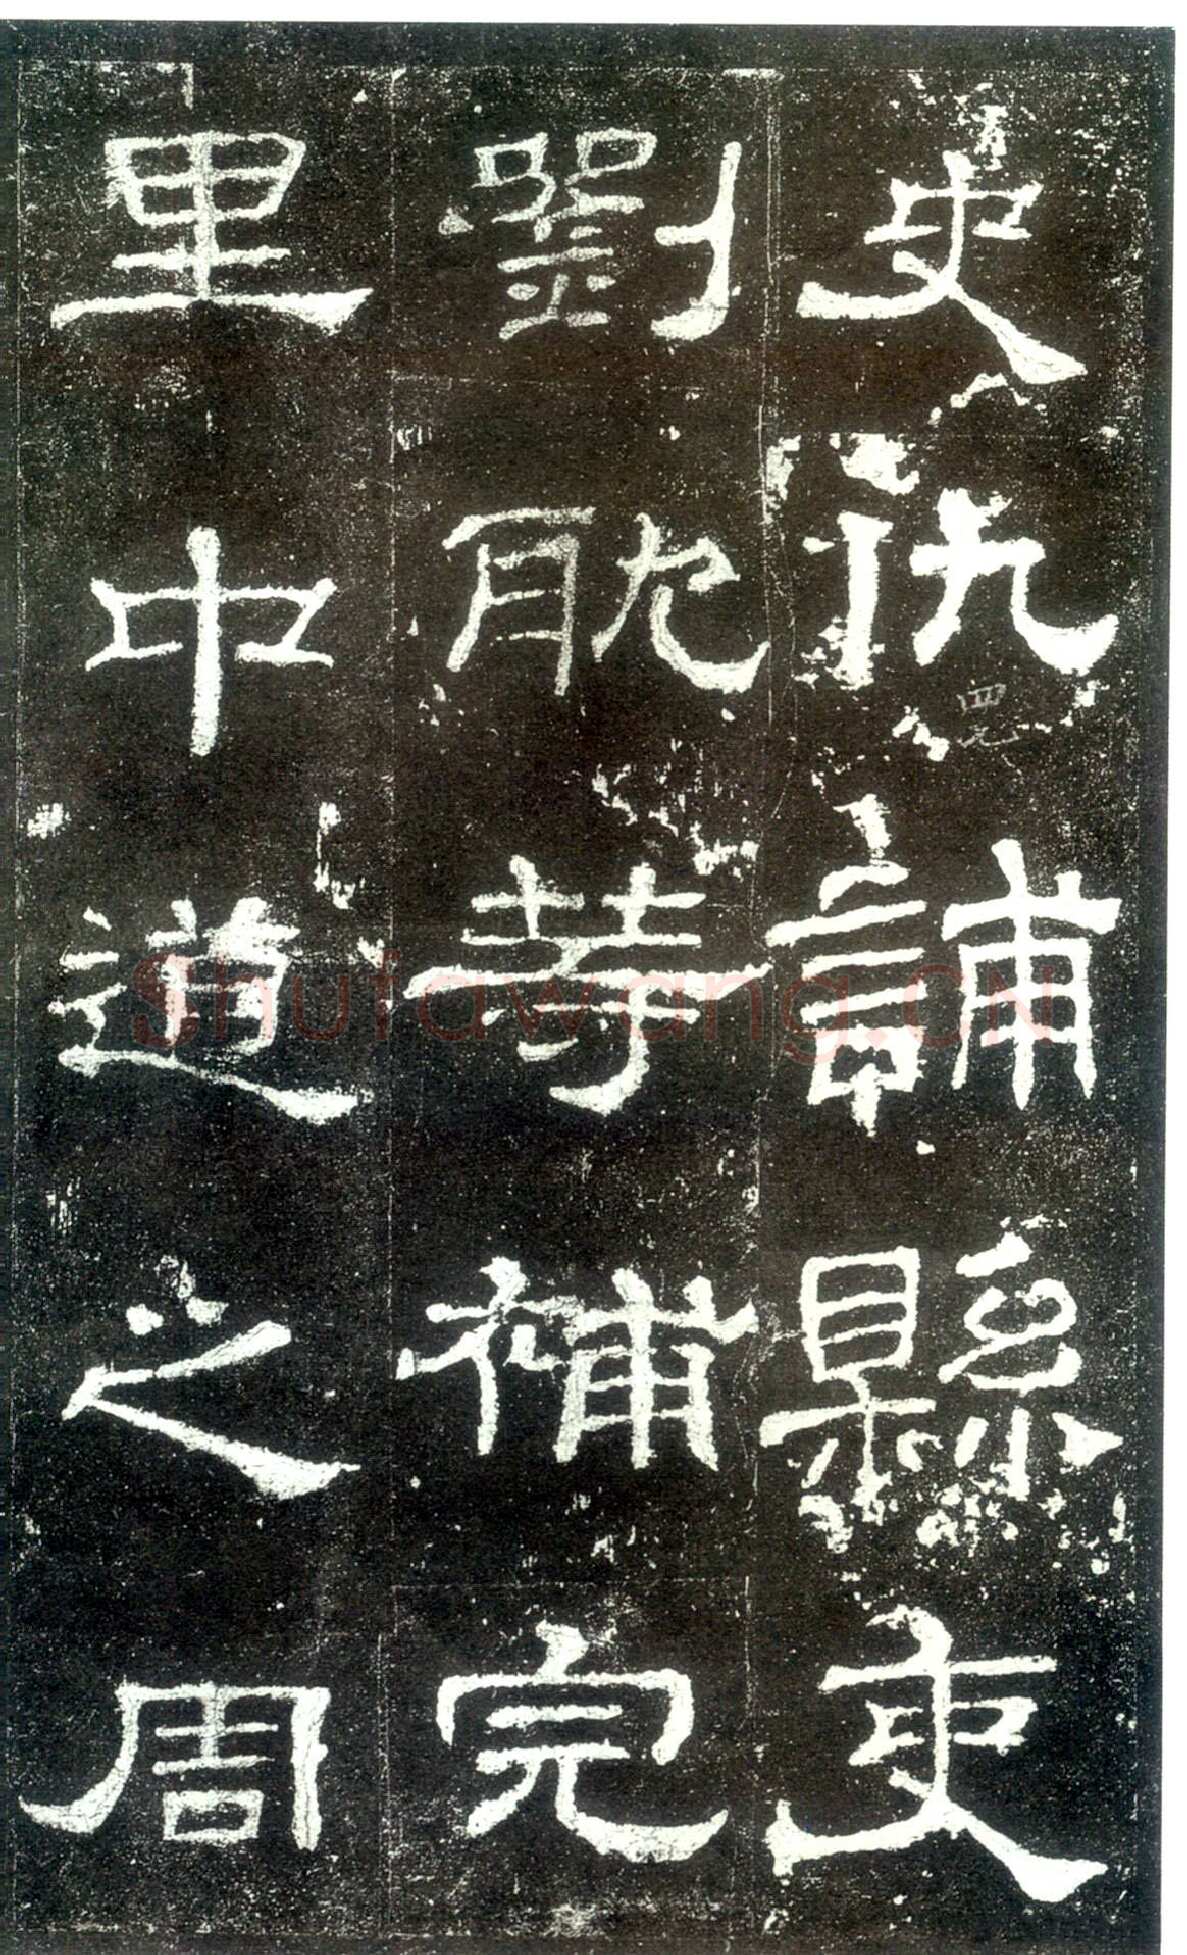 史仇誧縣吏
劉耽等補完
里中道之周
Shufawang.CN